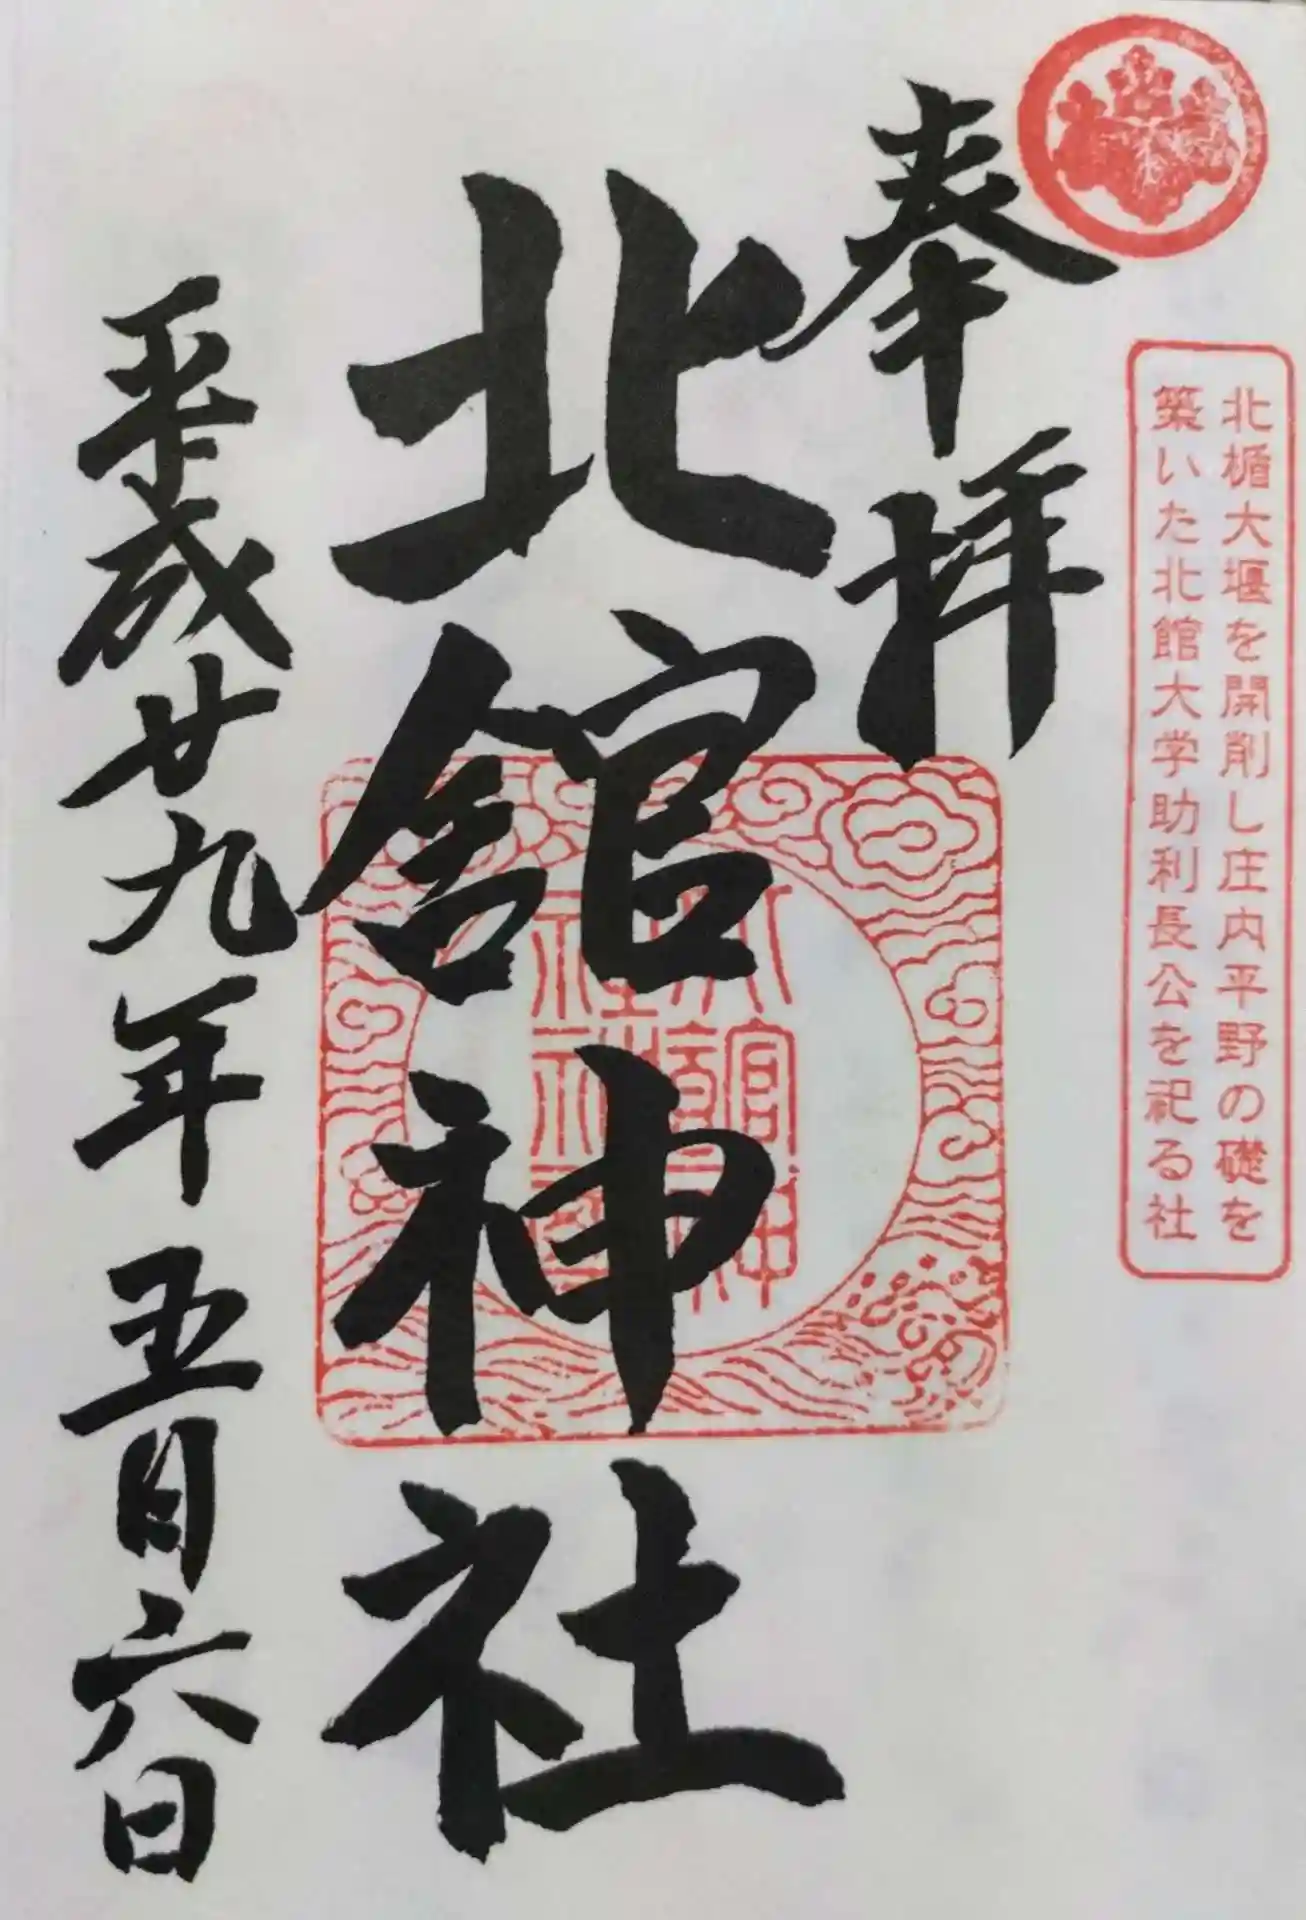 北楯大堰を開削し庄内平野の礎を
築いた北館大学助利長公を祀る社
奉拝
北舘神社
平成廿九年五月六日